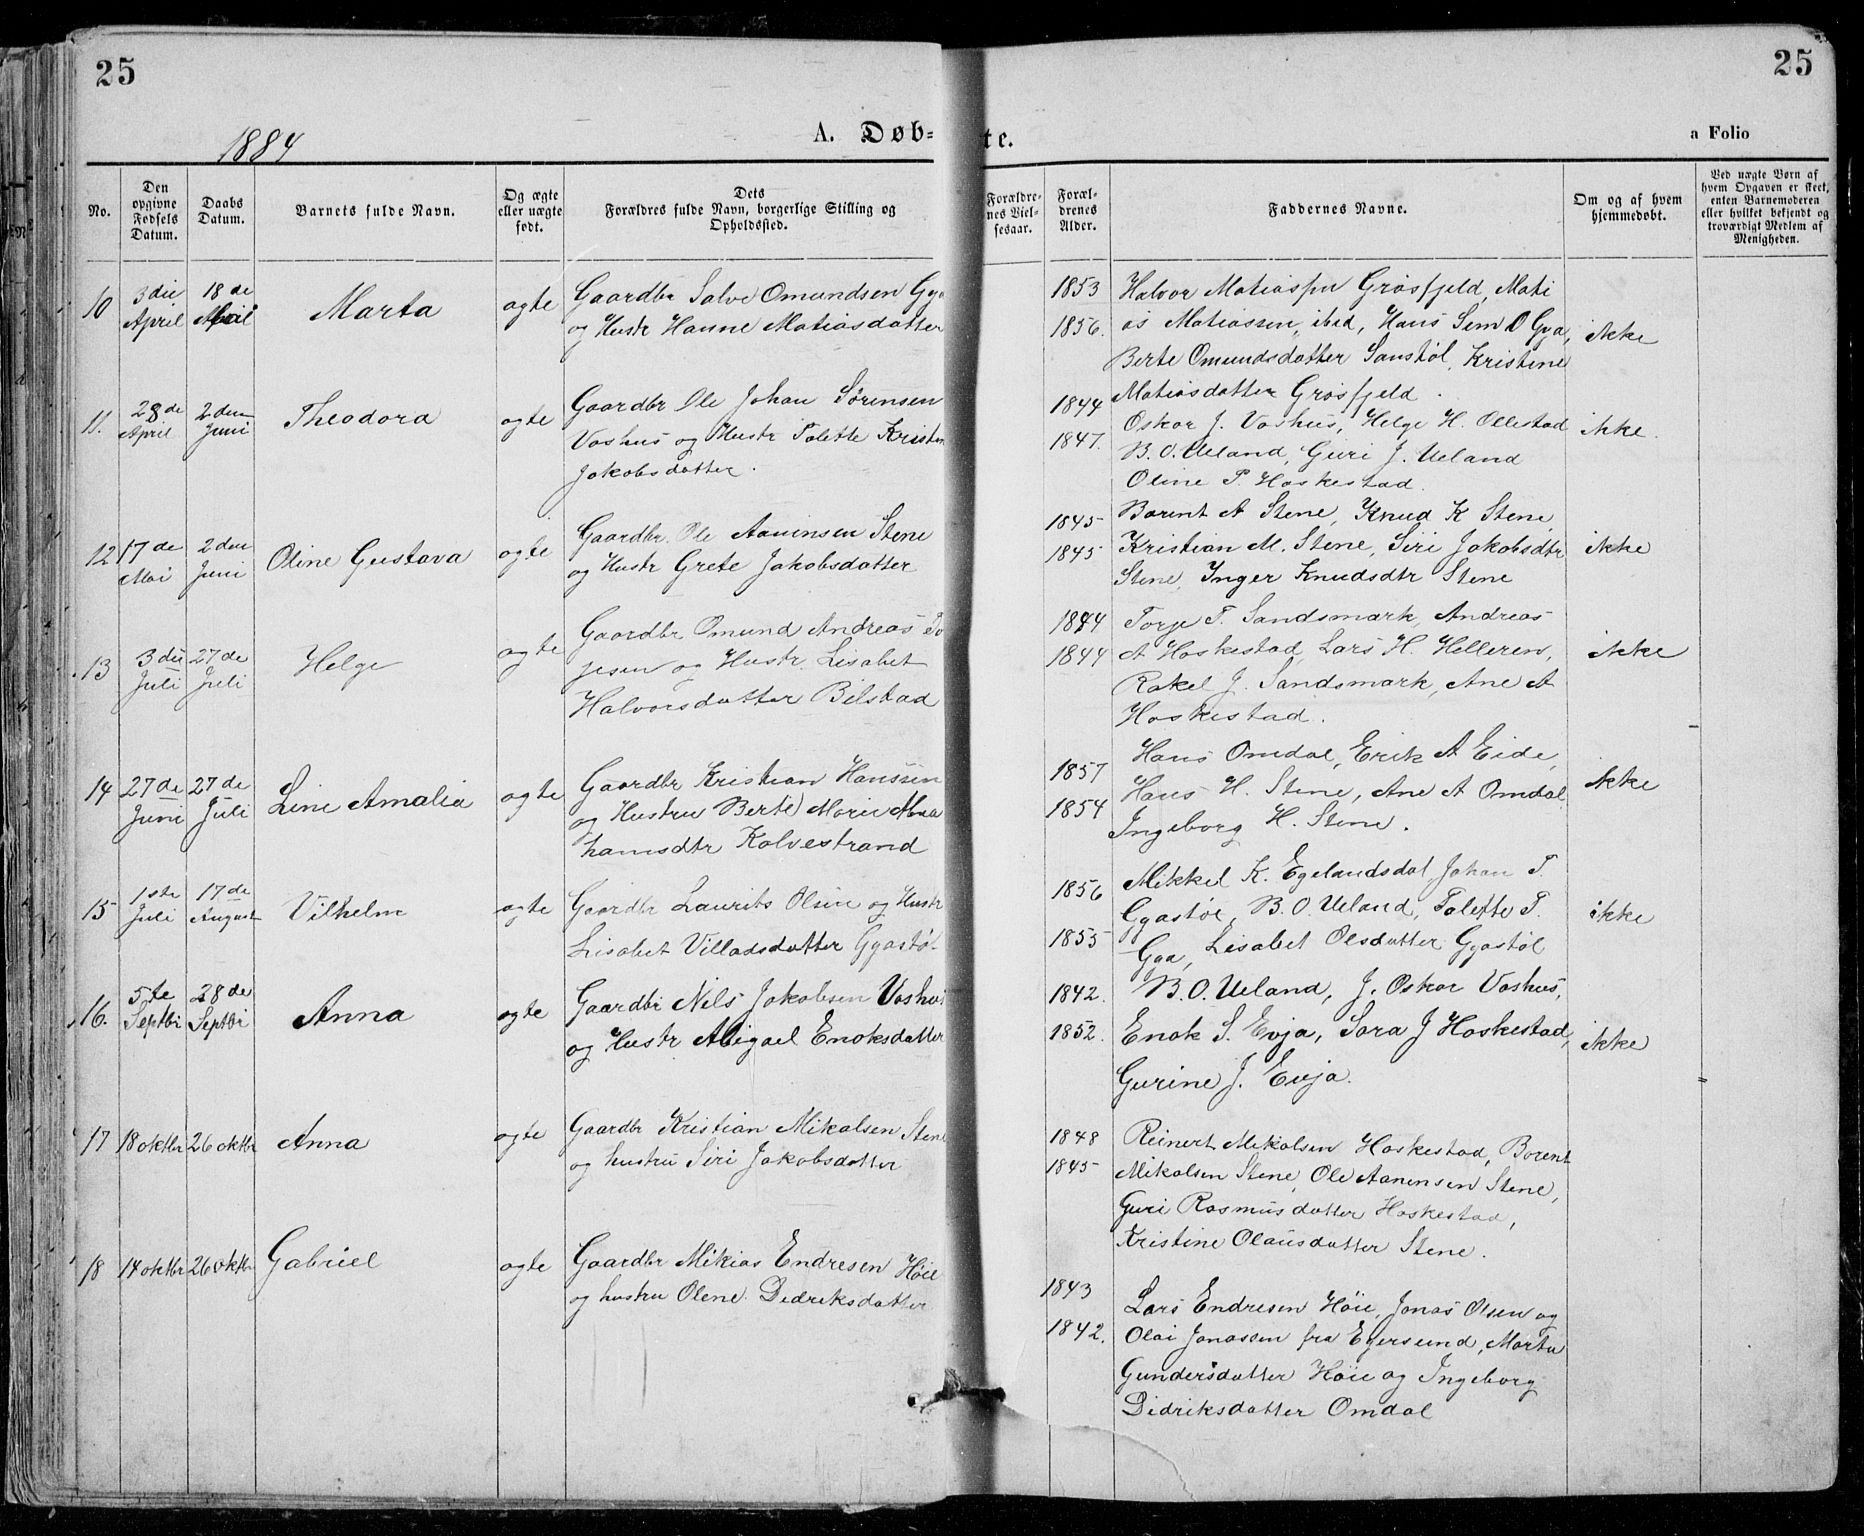 25
25
1884
A. Døb-
te.
a Folio
No.
Den opgivne Fødsels Datum.
Daabs Datum.
Barnets fulde Navn.
Og ægte eller uægte født.
Dets Forældres fulde Navn, borgerlige Stilling og Opholdssted.
Forældre-nes Viel-sesaar.
Foræl-drenes Alder.
Faddernes Navne.
Om og af hvem hjemmedøbt.
Ved uægte Børn af hvem Opgaven er skeet, enten Barnemoderen eller hvilket bekjendt og troværdigt Medlem af Menigheden.
10
3die April
18de Mai
Marta
ogte
Gaardbr Salve Omundsen
og Hustr Hanne Matiasdatter
1853
1856.
Halvor Matiassen Grøsfjeld, Mati
as Matiassen, ibid, Hans Sem O Gya,
Berte Omundsdatter Sanstøl, Kristine
Matiasdatter Grøsfjeld.
ikke
11.
28de April
2den Juni
Theodora
ogte
Gaardbr Ole Johan Sørensen
Vashus og Hustr Talette Kristin
Jakobsdatter.
1844
1847.
Oskar J. Vashus, Helge H. Ollestad
B. O. Ueland, Guri J. Ueland
Oline P. Haskestad
ikke.
12
17de Mai
2den Juni
Oline Gustava
ogte
Gaardbr. Ole Aanensen Stene
og Hustr Grete Jakobsdatter
1845
1845
Barent A Stene, Knud K Stene,
Kristian M. Stene, Siri Jakobsdtr
Stene, Inger Knudsdtr Stene
ikke
13
3die Juli
27de Juli
Helge
ogte
Gaardbr Omund Andreas To
jesen og Hustr. Lisabet
Halvorsdatter Bilstad
1844
1844
Torje T. Sandsmark, Andreas
A Haskestad, Lars H. Helleren,
Rakel J. Sandsmark, Ane A
Haskestad.
ikke
14
27de Juni
27de Juli
Line Amalia
ogte
Gaardbr Kristian Hanssen
og Hustru Berte Marie Abra
hamsdtr Kalvestrand
1857
1854
Hans Omdal, Erik A Eide,
Hans H. Stene, Ane A Omdal
Ingeborg H. Stene.
ikke
15
1ste Juli
17de August
Vilhelm
ogte
Gaardbr Laurits Olsen og Hustr
Lisabet Villadsdatter Gyastøl
1856
1855
Mikkel K. Egelandsdal, Johan T.
Gyastøl, B. O. Ueland, Talette T.
Gya, Lisabet Olsdatter Gyastøl
ikke
16.
5te Septbr
28de Septbr
Anna
ogte
Gaardbr Nils Jakobsen Vashus
og Hustr Abigael Enoksdatter
1842.
1852.
B. O. Ueland, J. Oskar Vashus,
Enok S. Evja, Sara J Haskestad,
Gurine J. Evja.
ikke
17
18 oktbr
26 oktbr
Anna
ogte
Gaardbr Kristian Mikalsen Stene
og hustru Siri Jakobsdatter
1848
1845
Reinert Mikalsen Haskestad, Borent
Mikalsen Stene, Ole Aanensen Stene,
Guri Rasmusdatter Haskestad,
Kristine Olausdatter Stene.
18
14 oktbr
26 oktbr
Gabriel
ogte
Gaardbr Mikias Endresen Høie
og hustru Olene Didriksdatter
1843
1842.
Lars Endresen Høie, Jonas Olsen og
Olai Jonassen fra Egersund, Marta
Gundersdatter Høie og Ingeborg
Didriksdatter Omdal